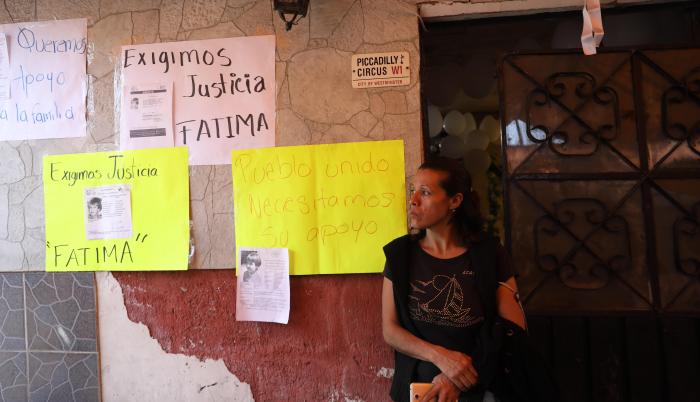 Queremos
Apoyo
a la familia
Exigimos
Justicia
FATIMA
PICCADILLY
CIRCUS W1
CITY OF WESTMINSTER
Exigimos Justicia
"FATIMA"
Pueblo unido
Necesitamos
su apoyo